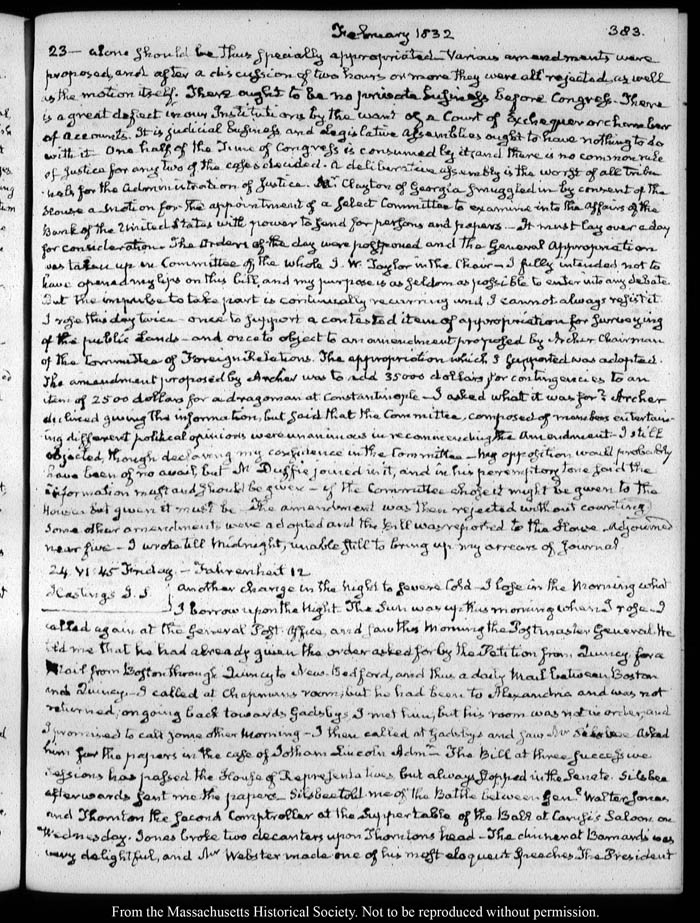 February 1832
383.
23— alone should be thus specially appropriated— Various amendments were
proposed, and after a discussion of two hours or more they were all rejected, as well
as the motion itself. There ought to be no private business before Congress. There
is a great defect in our Institutions by the want of a Court of Exchequer or Chamber
of Accounts. It is judicial business and Legislative assemblies ought to have nothing to do
with it. One half of the Time of Congress is consumed by it; and there is no common rule
of Justice for any two of the cases decided. A deliberative assembly is the worst of all tribu-
nals for the Administration of Justice. Mr Clayton of Georgia smuggled in by consent of the
House a motion for the appointment of a Select Committee to examine into the Affairs of the
Bank of the United States with power to send for persons and papers— It must lay over a day
for consideration. The Orders of the day were postponed and the General Appropriation
was taken up in Committee of the whole J. W. Taylor in the Chair— I fully intended not to
have opened my lips on this bill, and my purpose is as seldom as possible to enter into any debate.
But the impulse to take part is continually recurring and I cannot always resist it.
I rose this day twice— once to support a contested item of appropriation for surveying
of the public Lands— and once to object to an amendment proposed by Archer Chairman
of the Committee of Foreign Relations. The appropriation which I supported was adopted.
The amendment proposed by Archer was to add 35000 dollars for contingencies to an
item of 2500 dollars for a dragoman at Constantinople— I asked what it was for? Archer
declined giving the information, but said that the Committee, composed of members entertain-
ing different political opinions were unanimous in recommending the Amendment— I still
objected, though declaring my confidence in the Committee— My opposition would probably
have been of no avail, but McDuffie joined in it, and in his peremptory tone said the
information must and should be given— if the Committee chose it might be given to the
House; but given it must be. The amendment was then rejected without counting.
Some other amendments were adopted and the bill was reported to the House. Adjourned
near five— I wrote till Midnight, unable still to bring up my arrears of Journal
24. VI:45 Friday.— Fahrenheit 12
Hastings S. S.
Another change in the Night to severe Cold— I lose in the Morning what
I borrow upon the Night. The Sun was up this morning when I rose— I
called again at the General Post Office, and saw this Morning the Postmaster General. He
told me that he had already given the order asked for by the Petition from Quincy for a
Mail from Boston through Quincy to New-Bedford, and thus a daily Mail between Boston
and Quincy— I called at Chapman's room; but he had been to Alexandria and was not
returned; on going back towards Gadsby's I met him; but his room was not in order, and
I promised to call some other Morning— I then called at Gadsby's and saw Mr Silsbee. Asked
him for the papers in the case of Jotham Lincoln Admr— The Bill at three successive
Sessions has passed the House of Representatives but always stopped in the Senate. Silsbee
afterwards sent me the papers— Silsbee told me of the Battle between Genl Walter Jones
and Thornton the Second Comptroller at the Supper table of the Ball at Carusi's Saloon on
Wednesday. Jones broke two decanters upon Thornton's head— The dinner at Barnard's was
very delightful, and Mr Webster made one of his most eloquent Speeches. The President
From the Massachusetts Historical Society. Not to be reproduced without permission.